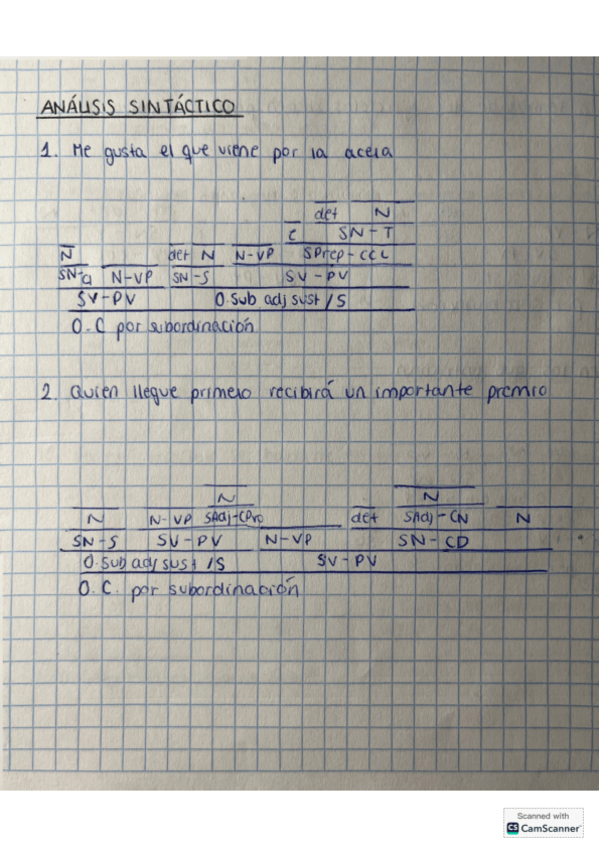 ANÁLISIS SINTÁCTICO
1. Me gusta el que viene por la acera
det N
E SN-T
N det N N-VP SPrep-CCL
SN- N-VP SN-S SV-PV
SV-PV O.Sub adj sust/S
O.C por subordinación
2. Quien llegue primero recibirá un importante premio
N N
N N-VP SAdj-CPro det SAdj-CN N
SN-S SV-PV N-VP SN-CD
O.Sub adj sust/S SV-PV
O.C. por subordinación
Scanned with
CS CamScanner